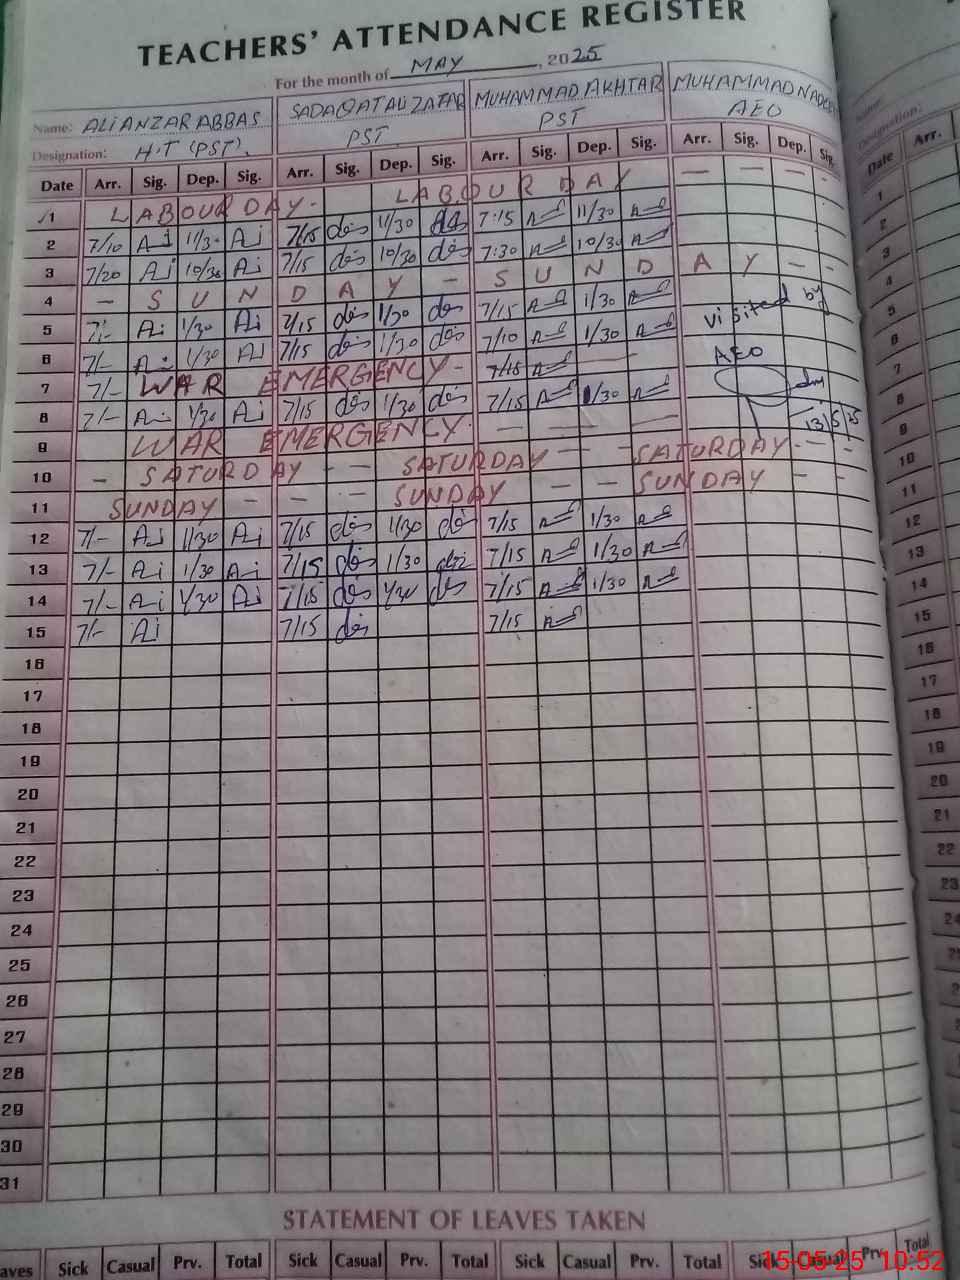 TEACHERS' ATTENDANCE REGISTER
For the month of MAY, 2025
Name: ALI ANZAR ABBAS SADAQAT ALI ZAFAR MUHAMMAD AKHTAR MUHAMMAD
Designation: H.T (PST). PST PST AEO
Date Arr. Sig. Dep. Sig. Arr. Sig. Dep. Sig. Arr. Sig. Dep. Sig. Arr. Sig. Dep. Sig.
1 LABOUR DAY - LABOUR DAY — — — -
2 7/10 11/30 7/15 11/30 7:15 11/30
3 7/20 10/30 7/15 10/30 7:30 10/30
4 - SUNDAY - SUNDAY - -
5 7/- 1/30 7/15 1/30 7/15 1/30 Visited by
6 7/- 1/30 7/15 1/30 7/10 1/30 AEO
7 7/- WAR EMERGENCY - 7/15 — —
8 7/- 1/30 7/15 1/30 7/15 1/30 13/5/25
9 WAR EMERGENCY. — — — —
10 - SATURDAY - - SATURDAY - - SATURDAY - -
11 SUNDAY - - - SUNDAY - - SUNDAY - -
12 7/- 1/30 7/15 1/30 7/15 1/30
13 7/- 1/30 7/15 1/30 7/15 1/30
14 7/- 1/30 7/15 1/30 7/15 1/30
15 7/- 7/15 7/15
16
17
18
19
20
21
22
23
24
25
26
27
28
29
30
31
STATEMENT OF LEAVES TAKEN
aves Sick Casual Prv. Total Sick Casual Prv. Total Sick Casual Prv. Total Sick Casual Prv. Total
15-05-25 10:52
Name:
Designation:
Date Arr.
1
2
3
4
5
6
7
8
9
10
11
12
13
14
15
16
17
18
19
20
21
22
23
24